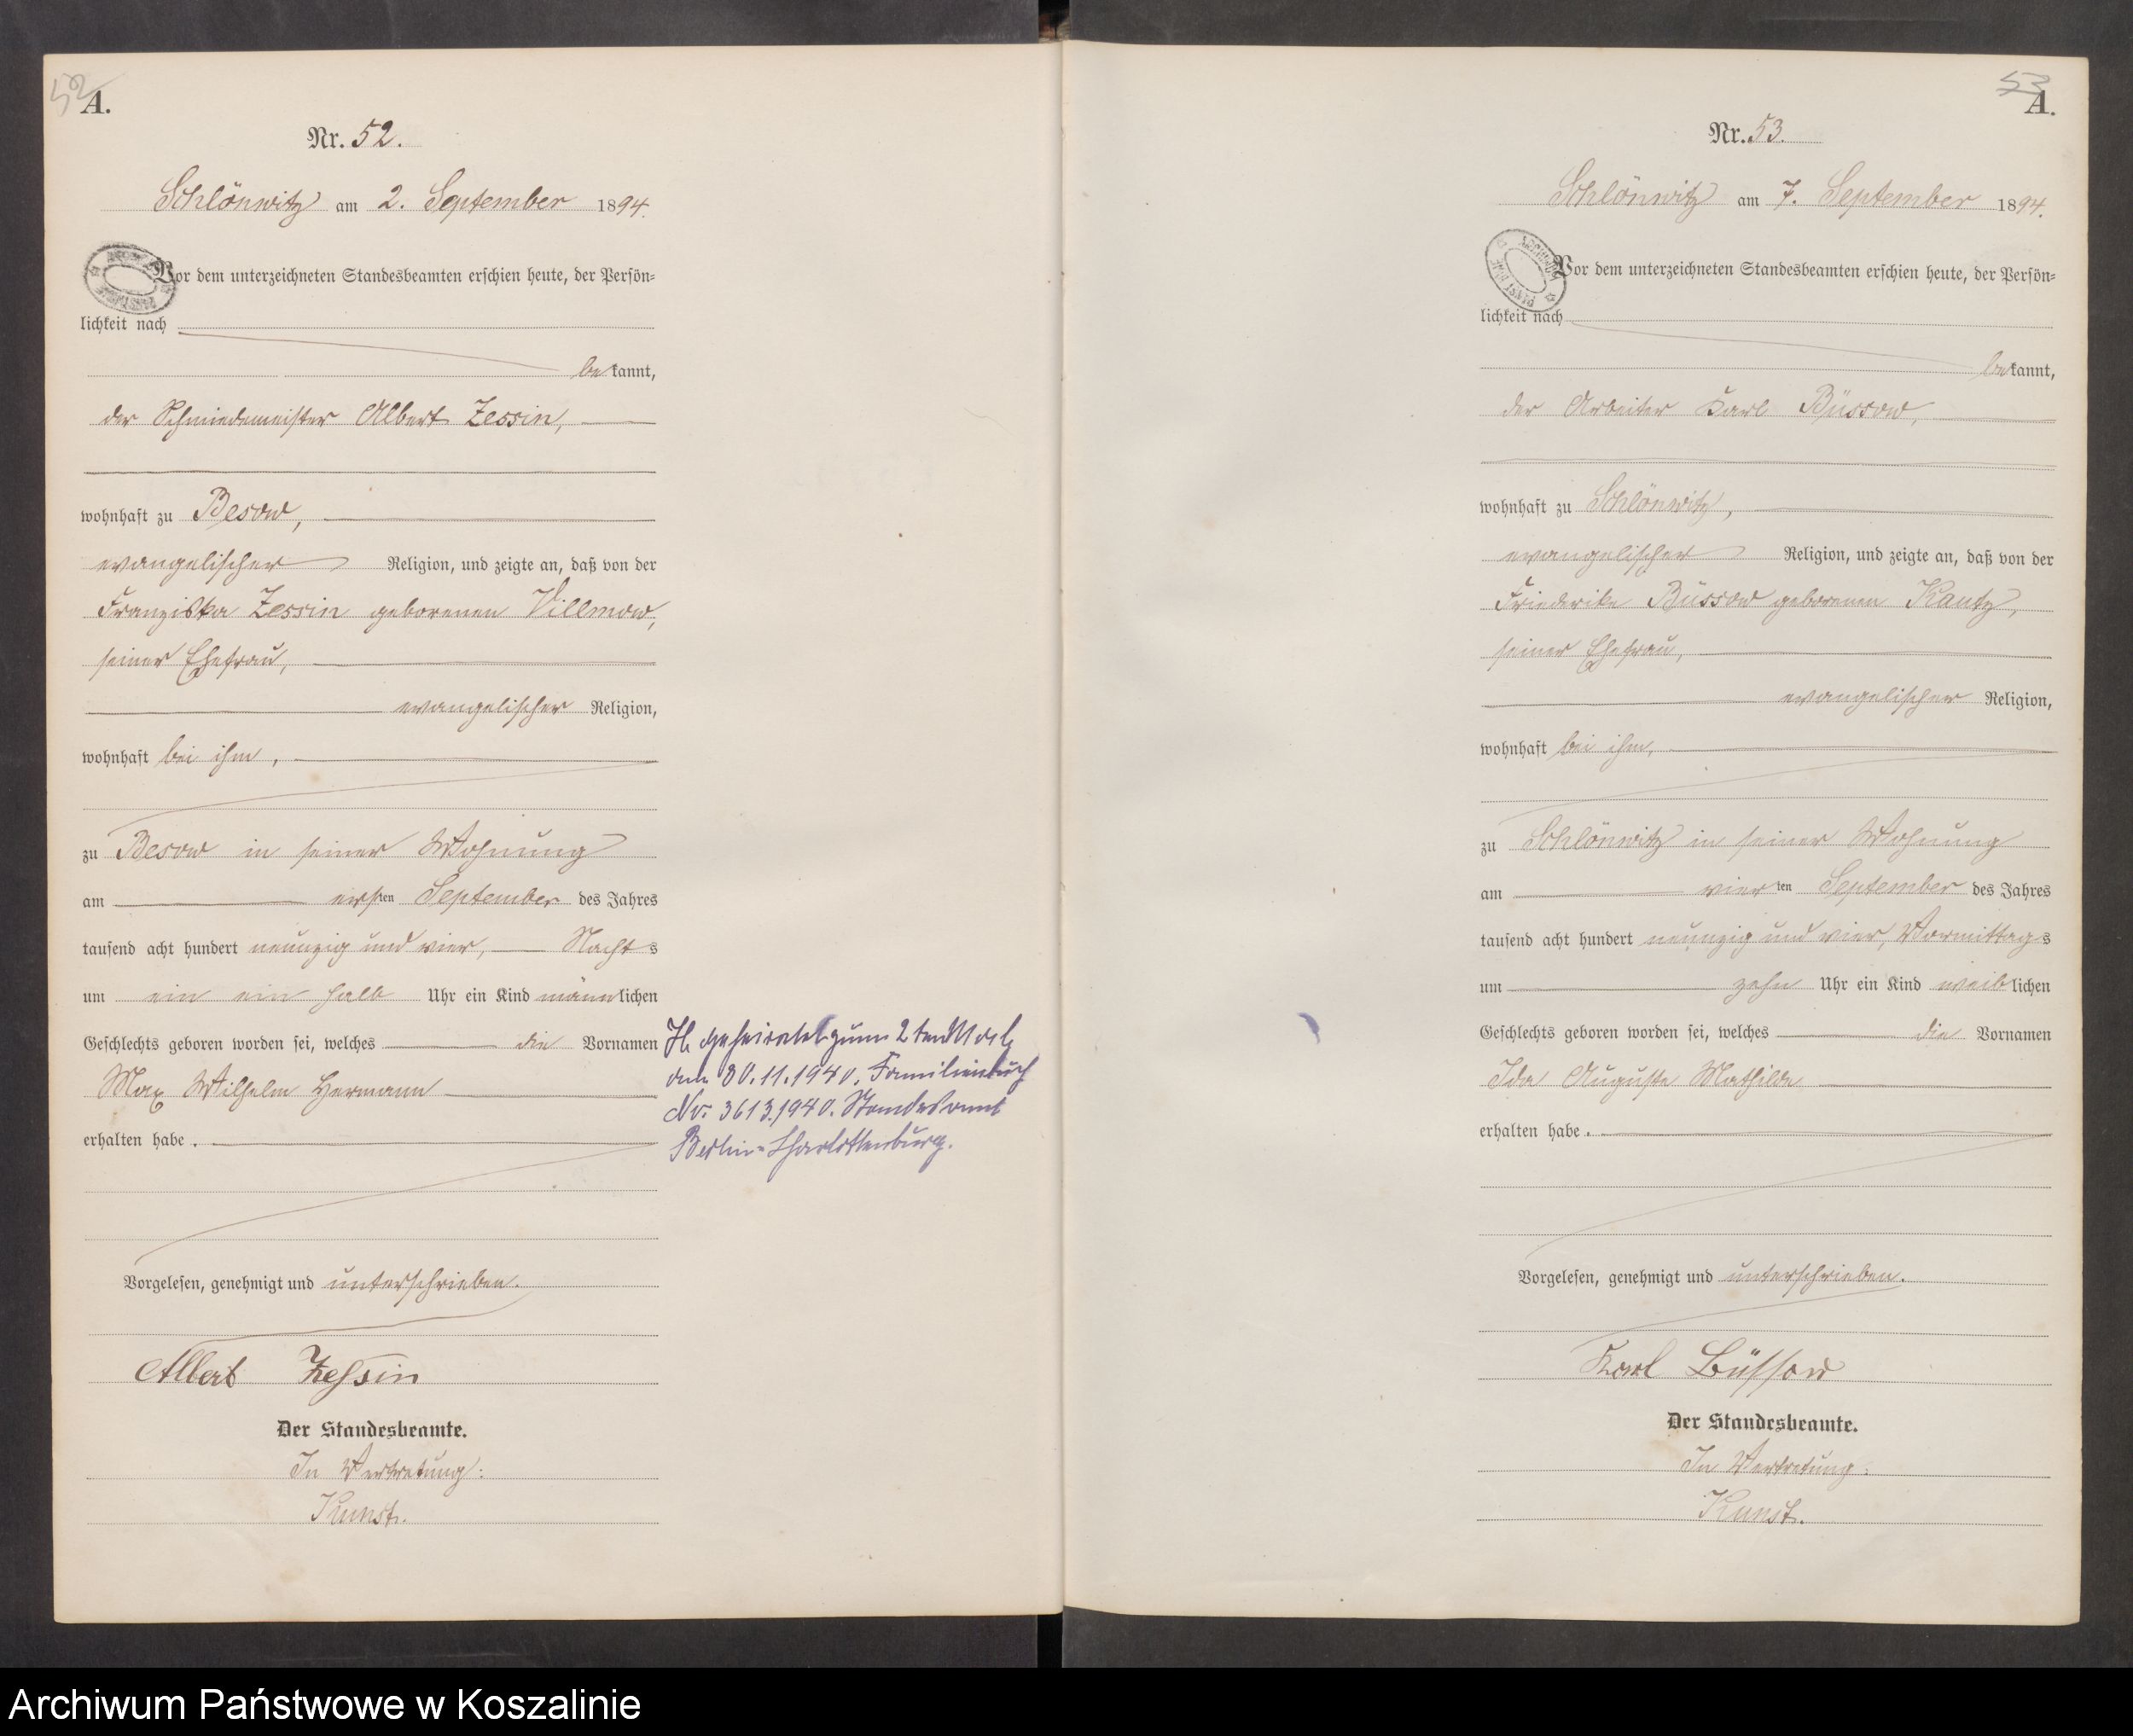 52
A.
Nr. 52.
Schlönwitz am 2. September 1894.
Vor dem unterzeichneten Standesbeamten erschien heute, der Persön=
lichkeit nach
bekannt,
der Schmiedemeister Albert Zessin,
wohnhaft zu Besow,
evangelischer Religion, und zeigte an, daß von der
Franziska Zessin geborenen Villmow,
seiner Ehefrau,
evangelischer Religion,
wohnhaft bei ihm,
zu Besow in seiner Wohnung
am ersten September des Jahres
tausend acht hundert neunzig und vier, Nachts
um ein ein halb Uhr ein Kind männlichen
Geschlechts geboren worden sei, welches die Vornamen
Max Wilhelm Hermann
erhalten habe.
geheiratet zum 2ten Mal
am 30.11.1940. Familienbuch
Nr. 3613.1940. Standesamt
Berlin-Charlottenburg.
Vorgelesen, genehmigt und unterschrieben.
Albert Zessin
Der Standesbeamte.
In Vertretung:
Kunst.
53
A.
Nr. 53.
Schlönwitz am 7. September 1894.
Vor dem unterzeichneten Standesbeamten erschien heute, der Persön=
lichkeit nach
bekannt,
der Arbeiter Karl Büssow,
wohnhaft zu Schlönwitz,
evangelischer Religion, und zeigte an, daß von der
Friederike Büssow geborenen Kautz,
seiner Ehefrau,
evangelischer Religion,
wohnhaft bei ihm,
zu Schlönwitz in seiner Wohnung
am vierten September des Jahres
tausend acht hundert neunzig und vier, Vormittags
um zehn Uhr ein Kind weiblichen
Geschlechts geboren worden sei, welches die Vornamen
Ida Auguste Mathilde
erhalten habe.
Vorgelesen, genehmigt und unterschrieben.
Karl Büssow
Der Standesbeamte.
In Vertretung:
Kunst.
Archiwum Państwowe w Koszalinie